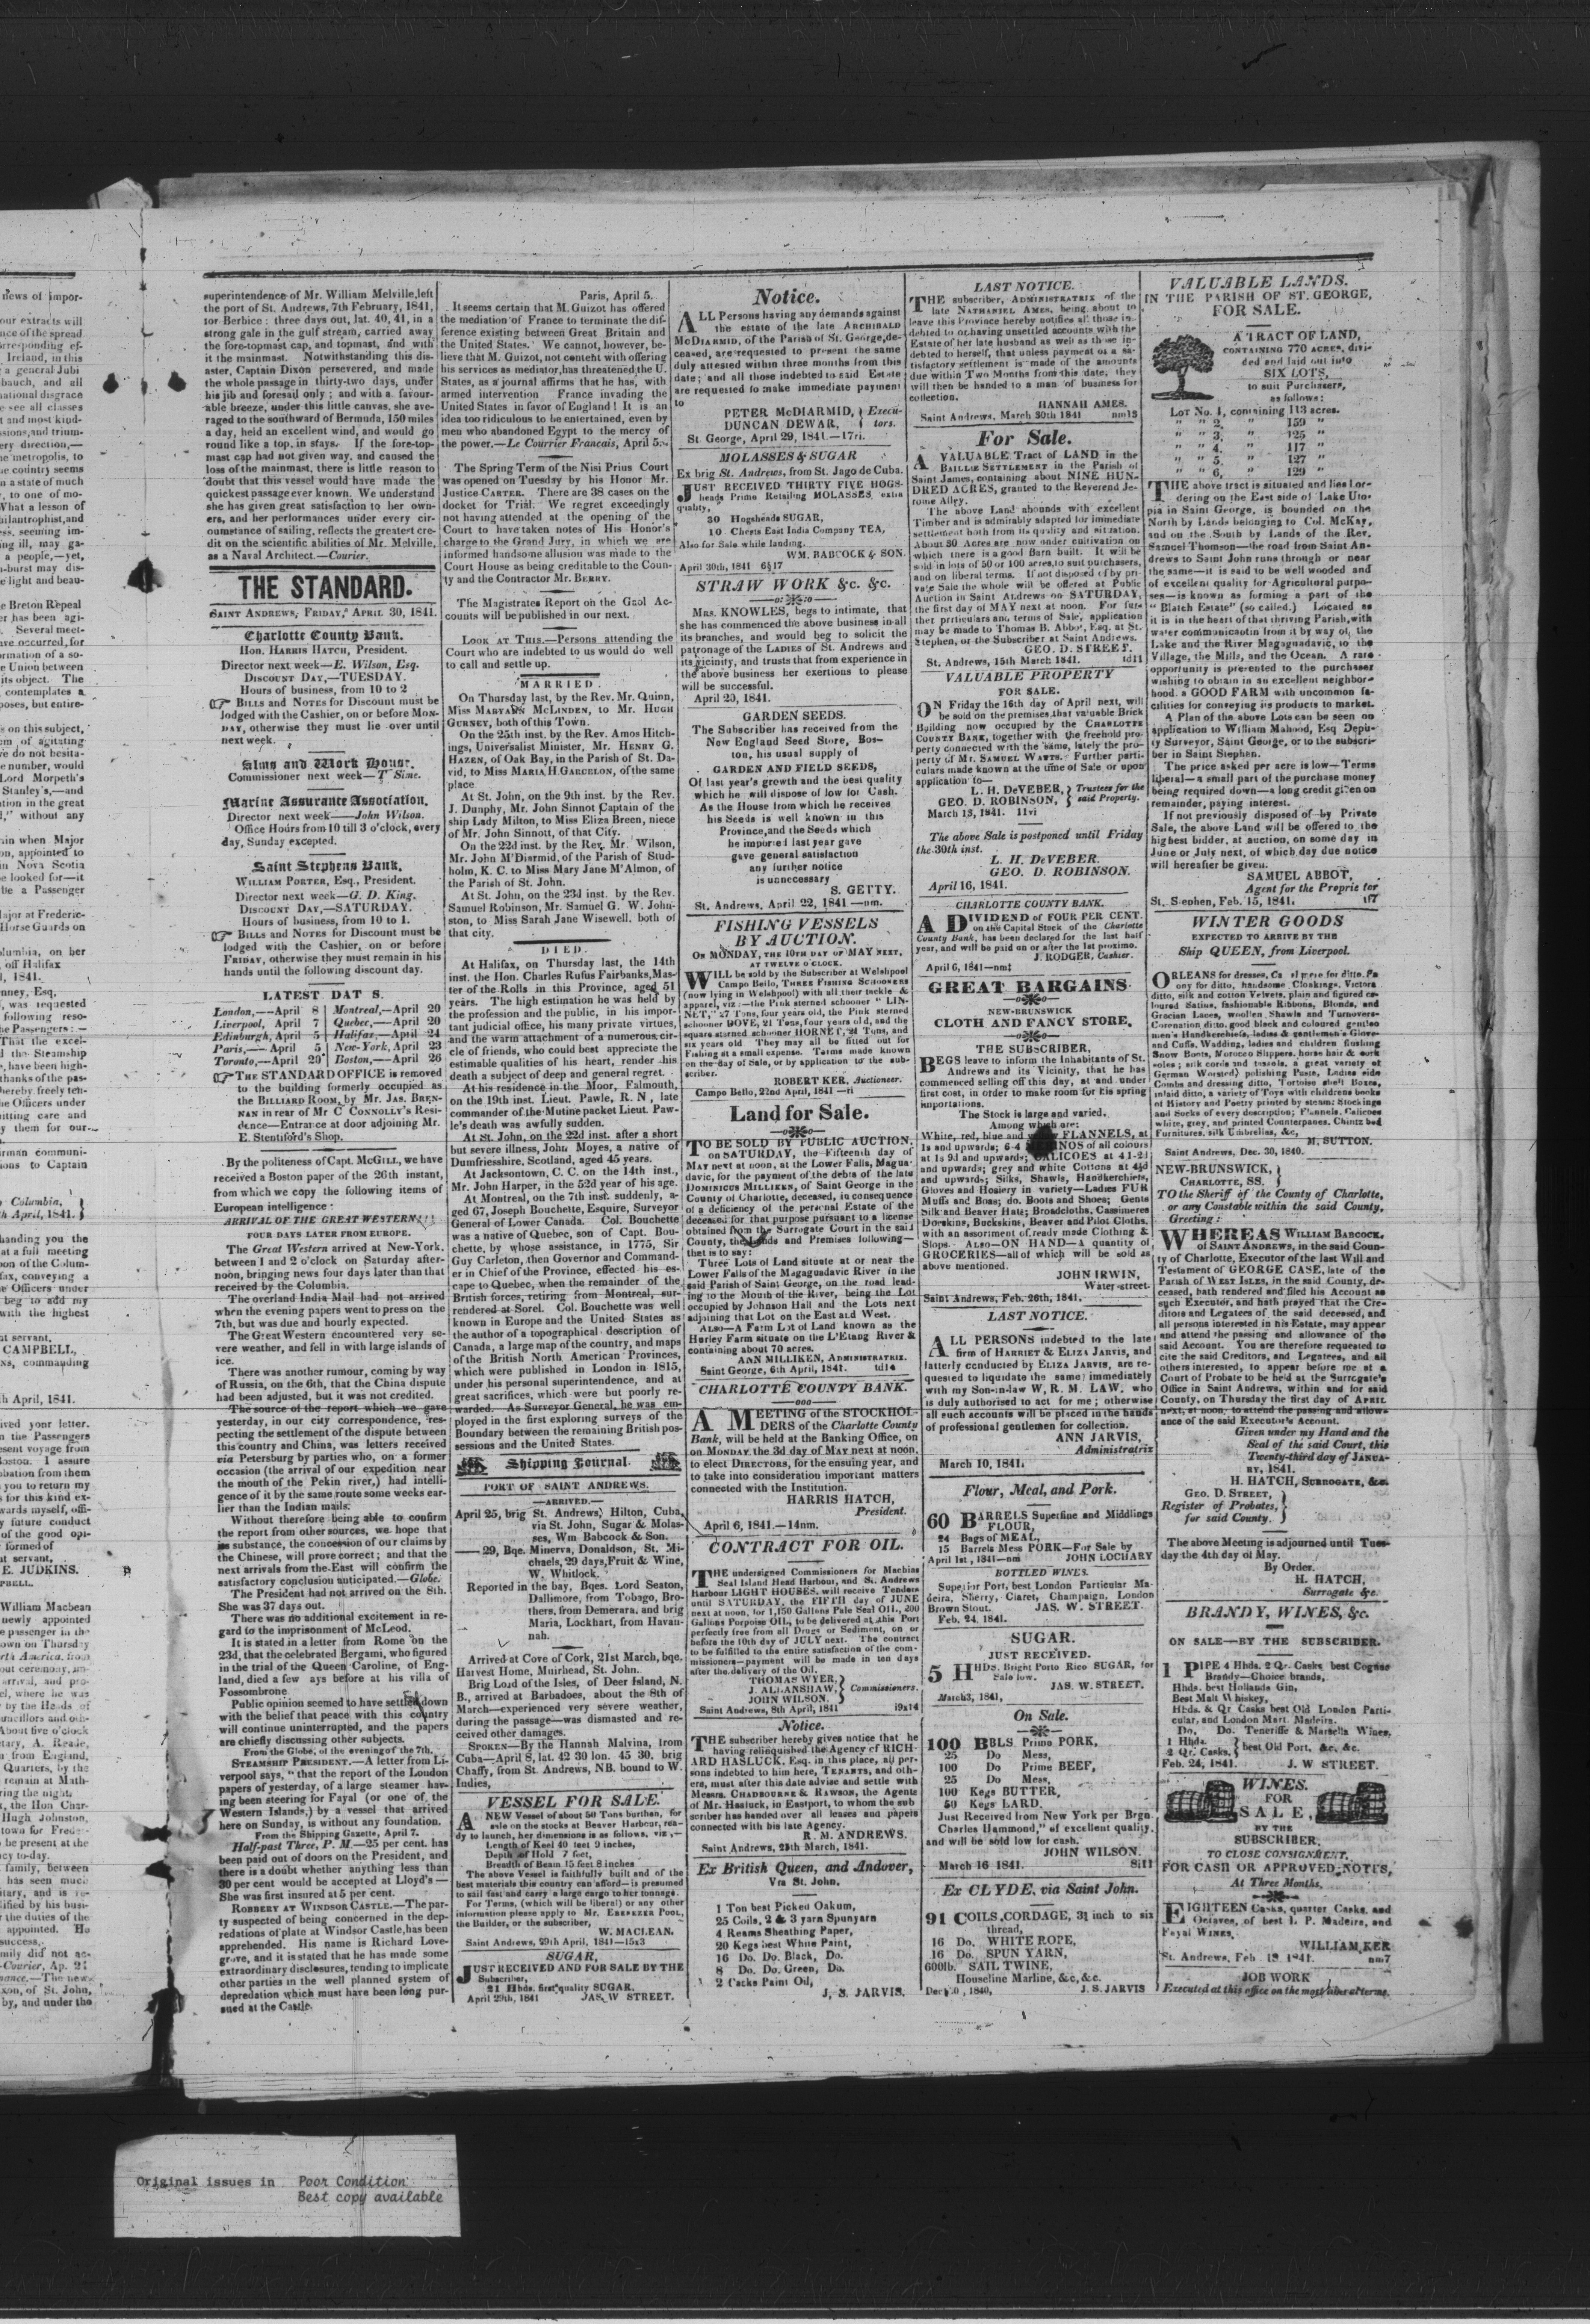 superintendence of Mr. William Melville,left
the port of St. Andrews, 7th February, 1841,
for Berbice : three days out, lat. 40, 41, in a
strong gale in the gulf stream, carried away
the fore-topmast cap, and topmast, and with
it the mainmast. Notwithstanding this dis-
aster, Captain Dixon persevered, and made
the whole passage in thirty-two days, under
his jib and foresail only ; and with a favour-
able breeze, under this little canvas, she ave-
raged to the southward of Bermuda, 150 miles
a day, held an excellent wind, and would go
round like a top, in stays. If the fore-top-
mast cap had not given way, and caused the
loss of the mainmast, there is little reason to
doubt that this vessel would have made the
quickest passage ever known. We understand
she has given great satisfaction to her own-
ers, and her performances under every cir-
cumstance of sailing, reflects the greatest cre-
dit on the scientific abilities of Mr. Melville,
as a Naval Architect.—Courier.
THE STANDARD.
SAINT ANDREWS, FRIDAY, APRIL 30, 1841.
Charlotte County Bank.
Hon. HARRIS HATCH, President.
Director next week—E. Wilson, Esq.
DISCOUNT DAY,—TUESDAY.
Hours of business, from 10 to 2
BILLS and NOTES for Discount must be
lodged with the Cashier, on or before MON-
DAY, otherwise they must lie over until
next week.
Alms and Work House.
Commissioner next week—T Sime.
Marine Assurance Association.
Director next week——John Wilson.
Office Hours from 10 till 3 o'clock, every
day, Sunday excepted.
Saint Stephens Bank.
WILLIAM PORTER, Esq., President.
Director next week—G. D. King.
DISCOUNT DAY,—SATURDAY.
Hours of business, from 10 to 1.
BILLS and NOTES for Discount must be
lodged with the Cashier, on or before
FRIDAY, otherwise they must remain in his
hands until the following discount day.
LATEST DAT S.
London,—April 8 | Montreal,—April 20
Liverpool, April 7 | Quebec,—April 20
Edinburgh, April 5 | Halifax,—April 24
Paris,—April 5 | New-York, April 23
Toronto,—April 20 | Boston,—April 26
THE STANDARD OFFICE is removed
to the building formerly occupied as
the BILLIARD ROOM, by Mr. JAS. BREN-
NAN in rear of Mr C CONNOLLY'S Resi-
dence—Entrance at door adjoining Mr.
E. Stentiford's Shop.
By the politeness of Capt. MCGILL, we have
received a Boston paper of the 26th instant,
from which we copy the following items of
European intelligence :
ARRIVAL OF THE GREAT WESTERN!!!
FOUR DAYS LATER FROM EUROPE.
The Great Western arrived at New-York,
between 1 and 2 o'clock on Saturday after-
noon, bringing news four days later than that
received by the Columbia.
The overland India Mail had not arrived
when the evening papers went to press on the
7th, but was due and hourly expected.
The Great Western encountered very se-
vere weather, and fell in with large islands of
ice.
There was another rumour, coming by way
of Russia, on the 6th, that the China dispute
had been adjusted, but it was not credited.
The source of the report which we gave
yesterday, in our city correspondence, res-
pecting the settlement of the dispute between
this country and China, was letters received
via Petersburg by parties who, on a former
occasion (the arrival of our expedition near
the mouth of the Pekin river,) had intelli-
gence of it by the same route some weeks ear-
lier than the Indian mails.
Without therefore being able to confirm
the report from other sources, we hope that
its substance, the concession of our claims by
the Chinese, will prove correct ; and that the
next arrivals from the East will confirm the
satisfactory conclusion anticipated.—Globe.
The President had not arrived on the 8th.
She was 37 days out.
There was no additional excitement in re-
gard to the imprisonment of McLeod.
It is stated in a letter from Rome on the
23d, that the celebrated Bergami, who figured
in the trial of the Queen Caroline, of Eng-
land, died a few ays before at his villa of
Fossombrone.
Public opinion seemed to have settled down
with the belief that peace with this country
will continue uninterrupted, and the papers
are chiefly discussing other subjects.
From the Globe, of the evening of the 7th.
STEAMSHIP PRESIDENT.—A letter from Li-
verpool says, "that the report of the London
papers of yesterday, of a large steamer hav-
ing been steering for Fayal (or one of the
Western Islands,) by a vessel that arrived
here on Sunday, is without any foundation.
From the Shipping Gazette, April 7.
Half-past Three, P. M.—25 per cent. has
been paid out of doors on the President, and
there is a doubt whether anything less than
30 per cent would be accepted at Lloyd's—
She was first insured at 5 per cent.
ROBBERY AT WINDSOR CASTLE.—The par-
ty suspected of being concerned in the dep-
redations of plate at Windsor Castle, has been
apprehended. His name is Richard Love-
grove, and it is stated that he has made some
extraordinary disclosures, tending to implicate
other parties in the well planned system of
depredation which must have been long pur-
sued at the Castle.
Paris, April 5.
It seems certain that M. Guizot has offered
the mediation of France to terminate the dif-
ference existing between Great Britain and
the United States. We cannot, however, be-
lieve that M. Guizot, not content with offering
his services as mediator,has threatened the U.
States, as a journal affirms that he has, with
armed intervention France invading the
United States in favor of England! It is an
idea too ridiculous to be entertained, even by
men who abandoned Egypt to the mercy of
the power.—Le Courrier Francais, April 5.
The Spring Term of the Nisi Prius Court
was opened on Tuesday by his Honor Mr.
Justice CARTER. There are 38 cases on the
docket for Trial. We regret exceedingly
not having attended at the opening of the
Court to have taken notes of His Honor's
charge to the Grand Jury, in which we are
informed handsome allusion was made to the
Court House as being creditable to the Coun-
ty and the Contractor Mr. BERRY.
The Magistrates Report on the Gaol Ac-
counts will be published in our next.
LOOK AT THIS.—Persons attending the
Court who are indebted to us would do well
to call and settle up.
MARRIED.
On Thursday last, by the Rev. Mr. Quinn,
Miss MARYANN MCLINDEN, to Mr. HUGH
GURNEY, both of this Town.
On the 25th inst. by the Rev. Amos Hitch-
ings, Universalist Minister, Mr. HENRY G.
HAZEN, of Oak Bay, in the Parish of St. Da-
vid, to Miss MARIA H.GARCELON, of the same
place.
At St. John, on the 9th inst. by the Rev.
J. Dunphy, Mr. John Sinnot Captain of the
ship Lady Milton, to Miss Eliza Breen, niece
of Mr. John Sinnott, of that City.
On the 22d inst. by the Rev. Mr. Wilson,
Mr. John M'Diarmid, of the Parish of Stud-
holm, K. C. to Miss Mary Jane M'Almon, of
the Parish of St. John.
At St. John, on the 23d inst. by the Rev.
Samuel Robinson, Mr. Samuel G. W. John-
ston, to Miss Sarah Jane Wisewell, both of
that city.
DIED.
At Halifax, on Thursday last, the 14th
inst. the Hon. Charles Rufus Fairbanks,Mas-
ter of the Rolls in this Province, aged 51
years. The high estimation he was held by
the profession and the public, in his impor-
tant judicial office, his many private virtues,
and the warm attachment of a numerous cir-
cle of friends, who could best appreciate the
estimable qualities of his heart, render his
death a subject of deep and general regret.
At his residence in the Moor, Falmouth,
on the 19th inst. Lieut. Pawle, R. N , late
commander of the Mutine packet Lieut. Paw-
le's death was awfully sudden.
At St. John, on the 22d inst. after a short
but severe illness, John Moyes, a native of
Dumfriesshire, Scotland, aged 45 years.
At Jacksontown, C. C. on the 14th inst.,
Mr. John Harper, in the 52d year of his age.
At Montreal, on the 7th inst. suddenly, a-
ged 67, Joseph Bouchette, Esquire, Surveyor
General of Lower Canada. Col. Bouchette
was a native of Quebec, son of Capt. Bou-
chette, by whose assistance, in 1775, Sir
Guy Carleton, then Governor and Command-
er in Chief of the Province, effected his es-
cape to Quebec, when the remainder of the
British forces, retiring from Montreal, sur-
rendered at Sorel. Col. Bouchette was well
known in Europe and the United States as
the author of a topographical description of
Canada, a large map of the country, and maps
of the British North American Provinces,
which were published in London in 1815,
under his personal superintendence, and at
great sacrifices, which were but poorly re-
warded. As Surveyor General, he was em-
ployed in the first exploring surveys of the
Boundary between the remaining British pos-
sessions and the United States.
Shipping Journal.
PORT OF SAINT ANDREWS.
—ARRIVED.—
April 25, brig St. Andrews, Hilton, Cuba,
via St. John, Sugar & Molas-
ses, Wm Babcock & Son.
—— 29, Bqe. Minerva, Donaldson, St. Mi-
chaels, 29 days,Fruit & Wine,
W. Whitlock.
Reported in the bay, Bqes. Lord Seaton,
Dallimore, from Tobago, Bro-
thers, from Demerara, and brig
Maria, Lockhart, from Havan-
nah.
Arrived at Cove of Cork, 21st March, bqe.
Harvest Home, Muirhead, St. John.
Brig Lord of the Isles, of Deer Island, N.
B., arrived at Barbadoes, about the 8th of
March—experienced very severe weather,
during the passage—was dismasted and re-
ceived other damages.
SPOKEN—By the Hannah Malvina, from
Cuba—April 8, lat. 42 30 lon. 45 30, brig
Chaffy, from St. Andrews, NB. bound to W.
Indies,
VESSEL FOR SALE.
A NEW Vessel of about 50 Tons burthen, for
sale on the stocks at Beaver Harbour, rea-
dy to launch, her dimensions is as follows, viz,—
Length of Keel 40 feet 9 inches,
Depth of Hold 7 feet,
Breadth of Beam 15 feet 8 inches
The above Vessel is faithfully built and of the
best materials this country can afford—is presumed
to sail fast and carry a large cargo to her tonnage.
For Terms, (which will be liberal) or any other
information please apply to Mr. EBENEZER POOL,
the Builder, or the subscriber,
W. MACLEAN.
Saint Andrews, 29th April, 1841—15x3
SUGAR,
JUST RECEIVED AND FOR SALE BY THE
Subscriber,
21 Hhds. first quality SUGAR.
April 29th, 1841 JAS. W STREET.
Notice.
ALL Persons having any demands against
the estate of the late ARCHIBALD
MCDIARMID, of the Parish of St. George,de-
ceased, are requested to present the same
duly attested within three months from this
date; and all those indebted to said Estate
are requested to make immediate payment
to
PETER McDIARMID, } Execu-
DUNCAN DEWAR, } tors.
St. George, April 29, 1841.—17ri.
MOLASSES & SUGAR
Ex brig St. Andrews, from St. Jago de Cuba.
JUST RECEIVED THIRTY FIVE HOGS-
heads Prime Retailing MOLASSES, extra
quality,
30 Hogsheads SUGAR,
10 Chests East India Company TEA,
Also for Sale while landing.
WM. BABCOCK & SON.
April 30th, 1841 6§17
STRAW WORK &c. &c.
MRS. KNOWLES, begs to intimate, that
she has commenced the above business in all
its branches, and would beg to solicit the
patronage of the LADIES of St. Andrews and
its vicinity, and trusts that from experience in
the above business her exertions to please
will be successful.
April 29, 1841.
GARDEN SEEDS.
The Subscriber has received from the
New England Seed Store, Bos-
ton, his usual supply of
GARDEN AND FIELD SEEDS,
Of last year's growth and the best quality
which he will dispose of low for Cash.
As the House from which he receives
his Seeds is well known in this
Province,and the Seeds which
he imported last year gave
gave general satisfaction
any further notice
is unnecessary
S. GETTY.
St. Andrews, April 22, 1841—nm.
FISHING VESSELS
BY AUCTION.
On MONDAY, THE 10TH DAY OF MAY NEXT,
AT TWELVE O'CLOCK.
WILL be sold by the Subscriber at Welshpool
Campo Bello, THREE FISHING SCHOONERS
(now lying in Welshpool) with all their tackle &
apparel, viz :—the Pink sterned schooner "LIN-
NET," 27 Tons, four years old, the Pink sterned
schooner DOVE, 21 Tons,four years old, and the
square sterned schooner HORNET, 21 Tons, and
six years old They may all be fitted out for
Fishing at a small expense. Terms made known
on the day of Sale, or by application to the sub-
scriber.
ROBERT KER, Auctioneer.
Campo Bello, 22nd April, 1841—ri
Land for Sale.
TO BE SOLD BY PUBLIC AUCTION.
on SATURDAY, the Fifteenth day of
MAY next at noon, at the Lower Falls, Magua-
davic, for the payment of the debts of the late
DOMINICUS MILLIKEN, of Saint George in the
County of Charlotte, deceased, in consequence
of a deficiency of the personal Estate of the
deceased for that purpose pursuant to a license
obtained from the Surrogate Court in the said
County, the Lands and Premises following—
that is to say:
Three Lots of Land situate at or near the
Lower Falls of the Magaguadavic River in the
said Parish of Saint George, on the road lead-
ing to the Mouth of the River, being the Lot
occupied by Johnson Hall and the Lots next
adjoining that Lot on the East and West.
ALSO—A Farm Lot of Land known as the
Hurley Farm situate on the L'Etang River &
containing about 70 acres.
ANN MILLIKEN, ADMINISTRATRIX.
Saint George, 6th April, 1841. td14
CHARLOTTE COUNTY BANK.
A MEETING of the STOCKHOL-
DERS of the Charlotte County
Bank, will be held at the Banking Office, on
on MONDAY the 3d day of MAY next at noon,
to elect DIRECTORS, for the ensuing year, and
to take into consideration important matters
connected with the Institution.
HARRIS HATCH,
President.
April 6, 1841.—14nm.
CONTRACT FOR OIL.
THE undersigned Commissioners for Machias
Seal Island Head Harbour, and St. Andrews
Harbour LIGHT HOUSES, will receive Tenders
until SATURDAY, the FIFTH day of JUNE
next at noon, for 1,150 Gallons Pale Seal OIL, 200
Gallons Porpoise OIL, to be delivered at this Port
perfectly free from all Drugs or Sediment, on or
before the 10th day of JULY next. The contract
to be fulfilled to the entire satisfaction of the com-
missioners—payment will be made in ten days
after the delivery of the Oil.
THOMAS WYER, }
J. ALLANSHAW, } Commissioners.
JOHN WILSON. }
Saint Andrews, 8th April, 1841 i9x14
Notice.
THE subscriber hereby gives notice that he
having relinquished the Agency of RICH-
ARD HASLUCK, Esq. in this place, all per-
sons indebted to him here, TENANTS, and oth-
ers, must after this date advise and settle with
Messrs. CHADBOURNE & RAWSON, the Agents
of Mr. Hasluck, in Eastport, to whom the sub
scriber has handed over all leases and papers
connected with his late Agency.
R. M. ANDREWS.
Saint Andrews, 25th March, 1841.
Ex British Queen, and Andover,
Via St. John.
1 Ton best Picked Oakum,
25 Coils, 2 & 3 yarn Spunyarn
4 Reams Sheathing Paper,
20 Kegs best White Paint,
16 Do. Do. Black, Do.
8 Do. Do. Green, Do.
2 Casks Paint Oil,
J. S. JARVIS.
LAST NOTICE.
THE subscriber, ADMINISTRATRIX of the
late NATHANIEL AMES, being about to
leave this Province hereby notifies all those in-
debted to or having unsettled accounts with the
Estate of her late husband as well as those in-
debted to herself, that unless payment or a sa-
tisfactory settlement is made of the amounts
due within Two Months from this date, they
will then be handed to a man of business for
collection.
HANNAH AMES.
Saint Andrews, March 30th 1841 nm13
For Sale.
A VALUABLE Tract of LAND in the
BAILLIE SETTLEMENT in the Parish of
Saint James, containing about NINE HUN-
DRED ACRES, granted to the Reverend Je-
rome Alley.
The above Land abounds with excellent
Timber and is admirably adapted for immediate
settlement both from its quality and situation.
About 30 Acres are now under cultivation on
which there is a good Barn built. It will be
sold in lots of 50 or 100 acres,to suit purchasers,
and on liberal terms. If not disposed of by pri-
vate Sale the whole will be offered at Public
Auction in Saint Andrews on SATURDAY,
the first day of MAY next at noon. For fur-
ther particulars and terms of Sale, application
may be made to Thomas B. Abbot, Esq. at St.
Stephen, or the Subscriber at Saint Andrews.
GEO. D. STREET.
St. Andrews, 15th March 1841. td11
VALUABLE PROPERTY
FOR SALE.
ON Friday the 16th day of April next, will
be sold on the premises,that valuable Brick
Building now occupied by the CHARLOTTE
COUNTY BANK, together with the freehold pro-
perty connected with the same, lately the pro-
perty of Mr. SAMUEL WATTS. Further parti-
culars made known at the time of Sale or upon
application to—
L. H. DeVEBER, } Trustees for the
GEO. D. ROBINSON, } said Property.
March 13, 1841. 11vi
The above Sale is postponed until Friday
the 30th inst.
L. H. DeVEBER.
GEO. D. ROBINSON.
April 16, 1841.
CHARLOTTE COUNTY BANK.
A DIVIDEND of FOUR PER CENT.
on the Capital Stock of the Charlotte
County Bank, has been declared for the last half
year, and will be paid on or after the 1st proximo.
J. RODGER, Cashier.
April 6, 1841—nm‡
GREAT BARGAINS
NEW-BRUNSWICK
CLOTH AND FANCY STORE.
THE SUBSCRIBER,
BEGS leave to inform the Inhabitants of St.
Andrews and its Vicinity, that he has
commenced selling off this day, at and under
first cost, in order to make room for his spring
importations.
The Stock is large and varied.
Among which are:
White, red, blue and FLANNELS, at
1s and upwards; 6-4 of all colours
at 1s 9d and upwards; CALICOES at 4 1-2d
and upwards; grey and white Cottons at 4½d
and upwards; Silks, Shawls, Handkerchiefs,
Gloves and Hosiery in variety—Ladies FUR
Muffs and Boas; do. Boots and Shoes; Gents
Silk and Beaver Hats; Broadcloths, Cassimeres
Doeskins, Buckskins, Beaver and Pilot Cloths,
with an assortment of ready made Clothing &
Slops. ALSO—ON HAND—A quantity of
GROCERIES—all of which will be sold as
above mentioned.
JOHN IRWIN,
Water-street.
Saint Andrews, Feb. 26th, 1841.
LAST NOTICE.
ALL PERSONS indebted to the late
firm of HARRIET & ELIZA JARVIS, and
latterly conducted by ELIZA JARVIS, are re-
quested to liquidate the same immediately
with my Son-in-law W. R. M. LAW, who
is duly authorised to act for me ; otherwise
all such accounts will be placed in the hands
of professional gentlemen for collection.
ANN JARVIS,
Administratrix
March 10, 1841.
Flour, Meal, and Pork.
60 BARRELS Superfine and Middlings
FLOUR,
24 Bags of MEAL,
15 Barrels Mess PORK—For Sale by
April 1st, 1841—nm JOHN LOCHARY
BOTTLED WINES.
Superior Port, best London Particular Ma-
deira, Sherry, Claret, Champaign, London
Brown Stout. JAS. W. STREET.
Feb. 24, 1841.
SUGAR.
JUST RECEIVED.
5 HHDS. Bright Porto Rico SUGAR, for
Sale low.
JAS. W. STREET.
March3, 1841,
On Sale.
100 BBLS Prime PORK,
25 Do Mess,
100 Do Prime BEEF,
25 Do Mess,
100 Kegs BUTTER,
50 Kegs LARD.
Just Received from New York per Brgn.
Charles Hammond," of excellent quality,
and will be sold low for cash.
JOHN WILSON.
March 16 1841. 8i11
Ex CLYDE, via Saint John.
91 COILS,CORDAGE, 3½ inch to six
thread,
16 Do. WHITE ROPE,
16 Do. SPUN YARN,
600lb. SAIL TWINE,
Houseline Marline, &c, &c.
1840, J. S. JARVIS
VALUABLE LANDS.
IN THE PARISH OF ST. GEORGE,
FOR SALE.
A TRACT OF LAND,
CONTAINING 770 ACRES, divi-
ded and laid out into
SIX LOTS,
to suit Purchasers,
as follows:
LOT No. 1, containing 113 acres.
" " 2, " 159 "
" " 3, " 125 "
" " 4, " 117 "
" " 5, " 127 "
" " 6, " 129 "
THE above tract is situated and lies bor-
dering on the East side of Lake Uto-
pia in Saint George, is bounded on the
North by Lands belonging to Col. McKay,
and on the South by Lands of the Rev.
Samuel Thomson—the road from Saint An-
drews to Saint John runs through or near
the same—it is said to be well wooded and
of excellent quality for Agricultural purpo-
ses—is known as forming a part of the
"Blatch Estate" (so called.) Located as
it is in the heart of that thriving Parish,with
water communicaotin from it by way of, the
Lake and the River Magaguadavic, to the
Village, the Mills, and the Ocean. A rare
opportunity is presented to the purchaser
wishing to obtain in an excellent neighbor-
hood. a GOOD FARM with uncommon fa-
cilities for conveying its products to market.
A Plan of the above Lots can be seen on
application to William Mahood, Esq Depu-
ty Surveyor, Saint George, or to the subscri-
ber in Saint Stephen.
The price asked per acre is low—Terms
liberal—a small part of the purchase money
being required down—a long credit given on
remainder, paying interest.
If not previously disposed of by Private
Sale, the above Land will be offered to the
highest bidder, at auction, on some day in
June or July next, of which day due notice
will hereafter be given.
SAMUEL ABBOT,
Agent for the Proprietor
St. Stephen, Feb. 15, 1841. tf7
WINTER GOODS
EXPECTED TO ARRIVE BY THE
Ship QUEEN, from Liverpool.
ORLEANS for dresses, for ditto.
ony for ditto, handsome Cloakings, Victora
ditto, silk and cotton Velvets, plain and figured co-
loured Satins, fashionable Ribbons, Blonds, and
Grecian Laces, woollen Shawls and Turnovers-
Coronation ditto, good black and coloured gentleo
men's Handkerchiefs, ladies & gentleman's Gloves
and Cuffs, Wadding, ladies and children flushing
Snow Boots, Morocco Slippers, horse hair & cork
soles; silk cords and tassels, a great variety of
German Worsted, polishing Paste, Ladies side
Combs and dressing ditto, Tortoise shell Boxes,
inlaid ditto, a variety of Toys with childrens books
of History and Poetry printed by steam: Stockings
and Socks of every description; Flannels, Calicoes
white, grey, and printed Counterpanes, Chintz bed
Furnitures, silk Umbrellas, &c,
M. SUTTON.
Saint Andrews, Dec. 30, 1840.
NEW-BRUNSWICK, }
CHARLOTTE, SS. }
TO the Sheriff of the County of Charlotte,
or any Constable within the said County,
Greeting :
WHEREAS WILLIAM BABCOCK,
of SAINT ANDREWS, in the said Coun-
ty of Charlotte, Executor of the last Will and
Testament of GEORGE CASE, late of the
Parish of WEST ISLES, in the said County, de-
ceased, hath rendered and filed his Account as
such Executor, and hath prayed that the Cre-
ditors and Legatees of the said deceased, and
all persons interested in his Estate, may appear
and attend the passing and allowance of the
said Account. You are therefore requested to
cite the said Creditors, and Legatees, and all
others interested, to appear before me at a
Court of Probate to be held at the Surrogate's
Office in Saint Andrews, within and for said
County, on Thursday the first day of APRIL
next, at noon, to attend the passing and allow-
ance of the said Executor's Account.
Given under my Hand and the
Seal of the said Court, this
Twenty-third day of JANUA-
RY, 1841.
H. HATCH, SURROGATE, &c.
GEO. D. STREET, }
Register of Probates, }
for said County. }
The above Meeting is adjourned until Tues-
day the 4th day of May.
By Order.
H. HATCH,
Surrogate &c.
BRANDY, WINES, &c.
ON SALE—BY THE SUBSCRIBER.
1 PIPE 4 Hhds. 2 Qr. Casks best Cognac
Brandy—Choice brands,
Hhds. best Hollands Gin,
Best Malt Whiskey,
Hhds. & Qr Casks best Old London Parti-
cular, and London Mart. Madeira.
Do, Do. Teneriffe & Marsella Wines,
1 Hhds. }
2 Qr. Casks, } best Old Port, &c, &c.
Feb. 24, 1841. J. W STREET.
WINES.
FOR
SALE,
BY THE
SUBSCRIBER.
TO CLOSE CONSIGNMENT.
FOR CASH OR APPROVED NOTES,
At Three Months,
EIGHTEEN Casks, quarter Casks, and
Octaves, of best L. P. Madeira, and
Fayal WINES,
WILLIAM KER
St. Andrews, Feb 19 1841. nm7
JOB WORK
Executed at this office on the most liberal terms.
Original issues in Poor Condition
Best copy available